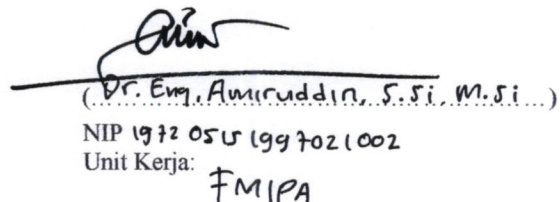 (Dr. Eng. Amiruddin, S.Si, M.Si)
NIP 19720515 199702 1 002
Unit Kerja:
FMIPA